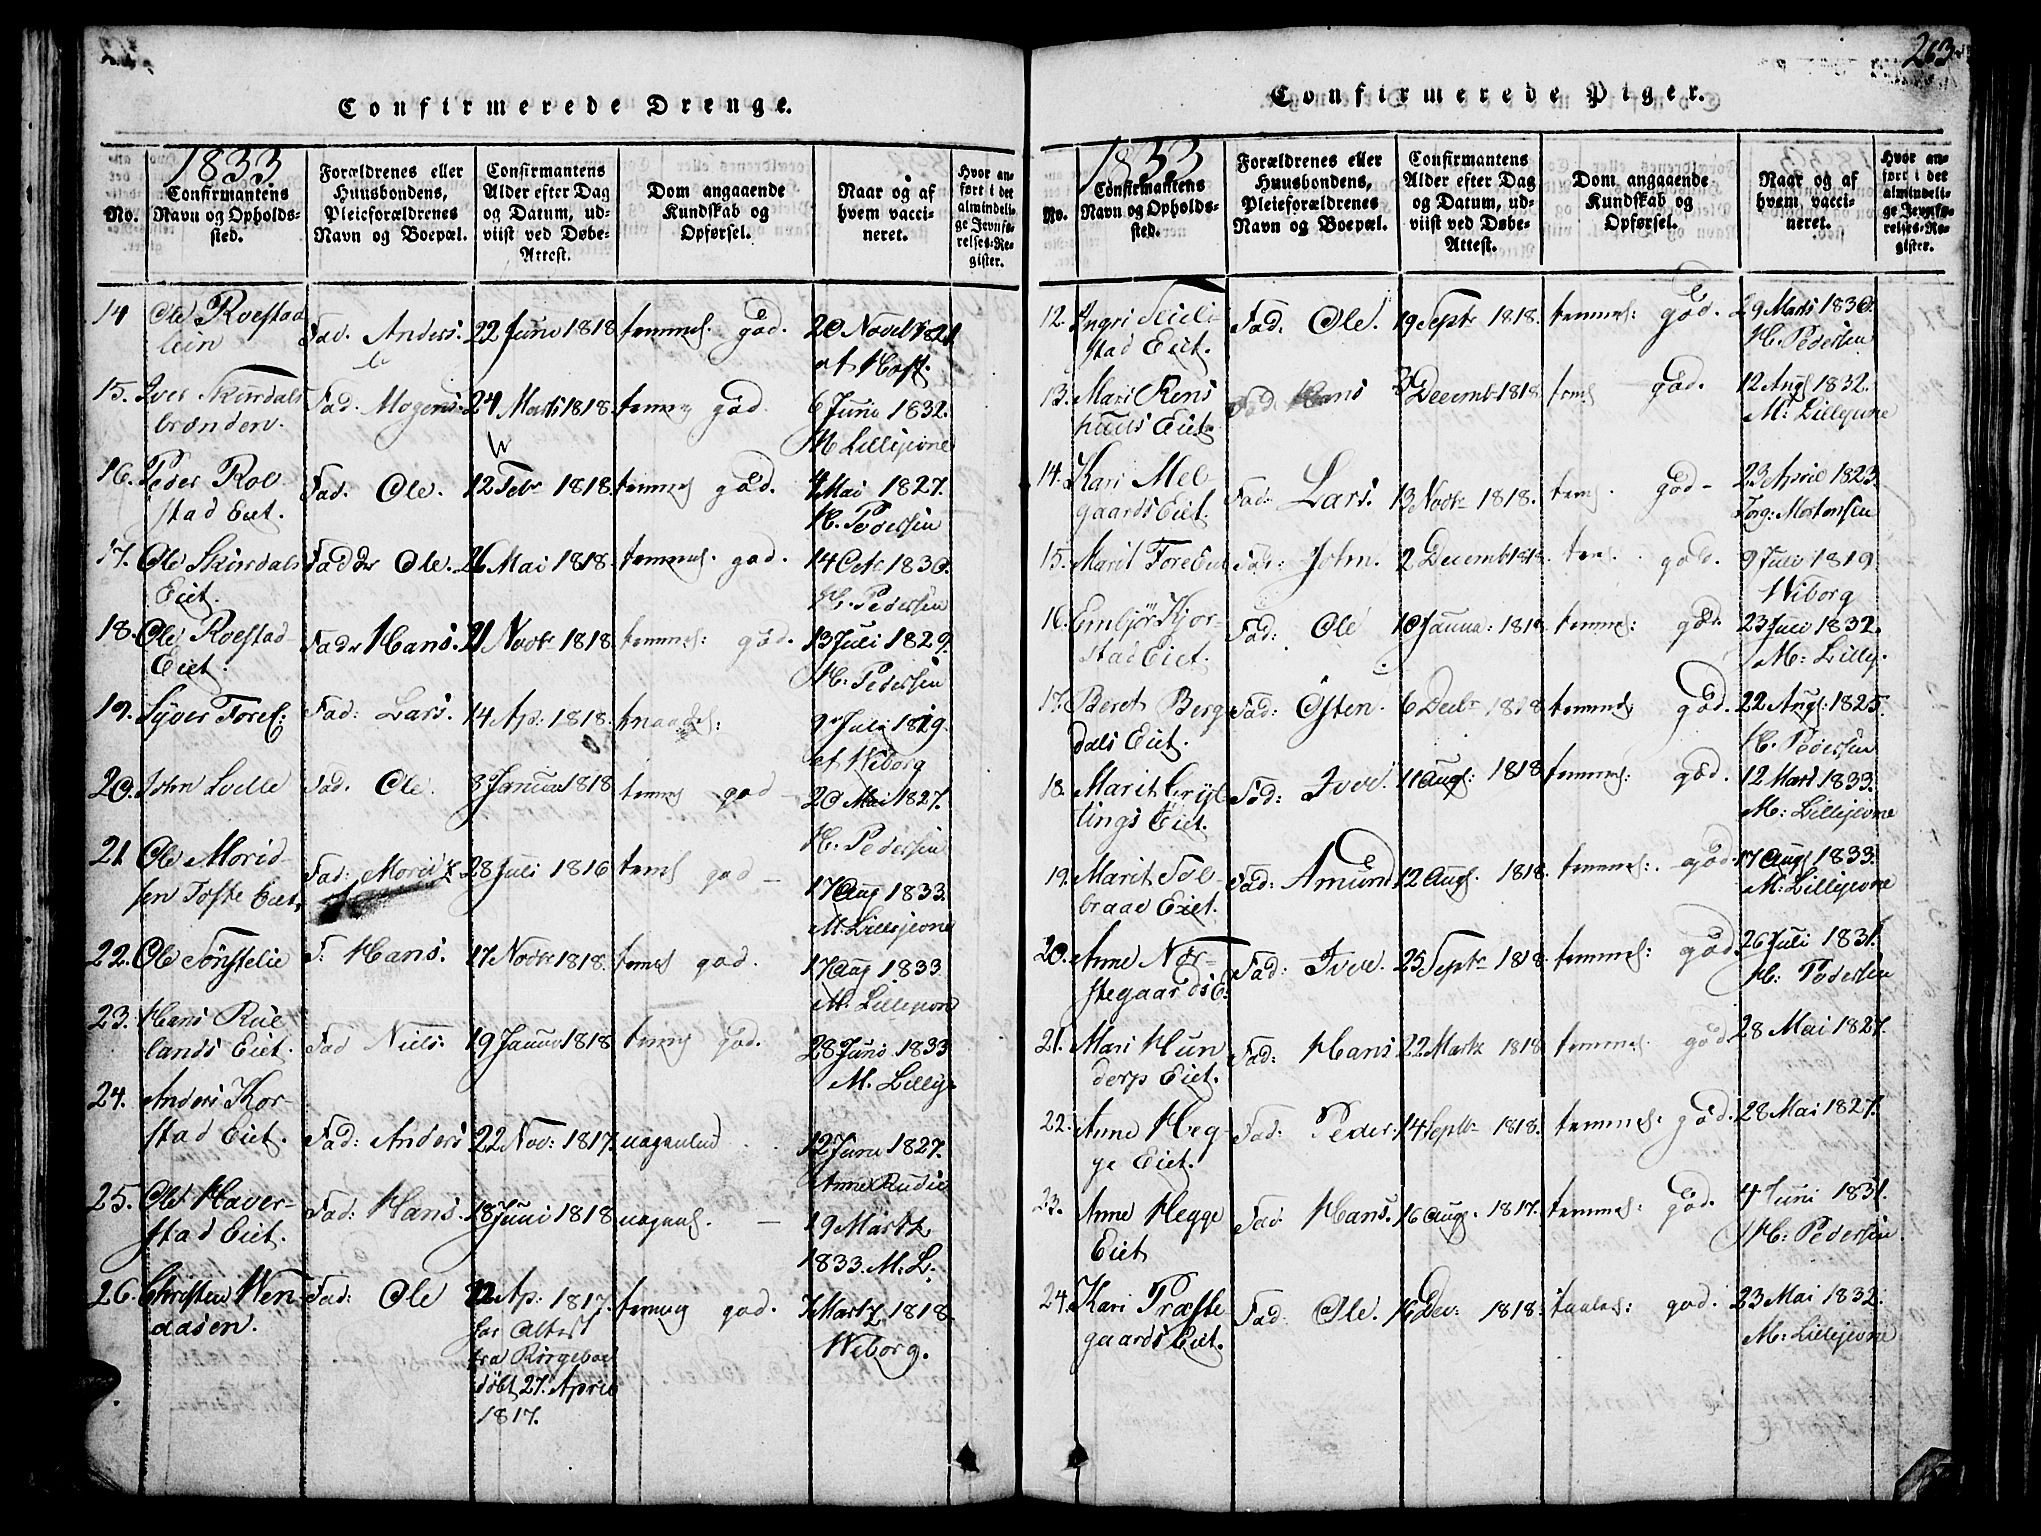 Confirmerede Drenge.
1833
No.
Confirmantens
Navn og Opholds-
sted.
Forældrenes eller
Huusbondens,
Pleieforældrenes
Navn og Boepæl.
Confirmantens
Alder efter Dag
og Datum, ud-
viist ved Døbe-
Attest.
Dom angaaende
Kundskab og
Opførsel.
Naar og af
hvem vacci-
neret.
Hvor an-
ført i det
almindeli-
ge Jevnfø-
relses-Re-
gister.
14 Ole Roestad
Fad. Anders. 22 Juni 1818 temmel. god.
15. Iver Skurdals
brænden. Fad. Mogens. 24 Marts 1818. god. 6 Juni 1832.
M Lillejevne
16. Peder Rol
stad Eiet. Fad. Ole. 12 Febr 1818. god. 4 Mai 1827.
H. Pedersen
17. Ole Skurdals
Eiet. Fader Ole. 26 Mai 1818. temmel. god. 14 Octr 1830.
H. Pedersen
18. Ole Roestad
Eiet. Fader Hans. 21 Novbr 1818 temmel: god. 13 Juli 1829.
H. Pedersen
19. Syver Fad: Lars. 14 Ap: 1818. 9 Juli 1819.
af Wiborg
20. John Fad. Ole. 8 Januar 1818 god 20 Mai 1827.
H. Pedersen
21 Ole Morid-
sen Tofte Eiet. Fad: Moritz 28 Juli 1816 god — 17 Aug 1833.
M. Lillejevne
22. Ole F. Hans. 17 Novbr 1818. god. 17 Aug 1833.
M. Lillejevne
23. Hans Rue
lands Eiet. Fad Niels. 19 Januar 1818 god. 28 Juni 1833
M. Lillej.
24. Anders Kor-
stad Eiet. Fad: Anders 22 Nov: 1817. 12 Juni 1827.
Anne Rudie
25. Ole Haver-
stad Eiet. Fad: Hans. 18 Juni 1818 — 19 Martz
1833. M: L:
26. Christen Wen
aasen. Fad: Ole 22 Ap: 1817. god. 7 Martz 1818.
har Attest Wiborg.
fra Ringeboe
døbt 27. April
1817.
263
Confirmerede Piger.
1833
No.
Confirmantens
Navn og Opholds-
sted.
Forældrenes eller
Huusbondens,
Pleieforældrenes
Navn og Boepæl.
Confirmantens
Alder efter Dag
og Datum, ud-
viist ved Døbe-
Attest.
Dom angaaende
Kundskab og
Opførsel.
Naar og af
hvem vacci-
neret.
Hvor an-
ført i det
almindeli-
ge Jevnfø-
relses-Re-
gister.
12.
stad Eiet. Fad: Ole. 19 Septr 1818. temmel: god. 29 Marts 1830.
H. Pedersen
13. Mari Rens
huus Eiet. Fad Hans Decemb 1818. god. 12 Aug 1832.
M: Lillejevne
14. Kari Mel
gaards Eiet. Fad: Lars. 13 Novbr 1818. god — 23 April 1823.
Jørg: Mortensen
15. Marit Fad: John. 2 Decemb 1818. god. 9 Juli 1819.
Wiborg
16. Kjor-
stad Eiet. Fad: Ole 10 Janua: 1818. temmel: god. 23 Juli 1832.
M: Lillej.
17. Beret Berg
dals Eiet. Fad: Østen. 6 Decbr 1818 temmel: god. 22 Aug: 1825.
H. Pedersen
18. Marit Gryt
tings Eiet. Fad: Iver. 11 Aug: 1818 temmel: god. 12 Mart 1833.
M: Lillejevne
19. Marit Sol-
braae Eiet. Fad: Amund 12 Aug. 1818. temmel: god. 17 Aug 1833.
M: Lillejevne
20. Anne Nor-
stegaards E: Fad: Iver. 25 Septr 1818. temmel: god. 26 Juli 1831.
H: Pedersen
21. Mari Hun
derp Eiet. Fad: Hans 22 Martz 1818 temmel. god 28 Mai 1827.
22. Anne Heg-
ge Eiet. Fad: Peder. 14 Septbr 1818. temmel: god. 28 Mai 1827.
23. Anne Hegge
Eiet Fad. Hans. 16 Aug. 1817. temmel: god. 4 Juni 1831.
H: Pedersen
24. Kari Præste
gaards Eiet. Fad: Ole. 16 Dec: 1818. god. 23 Mai 1832.
M: Lillejevne